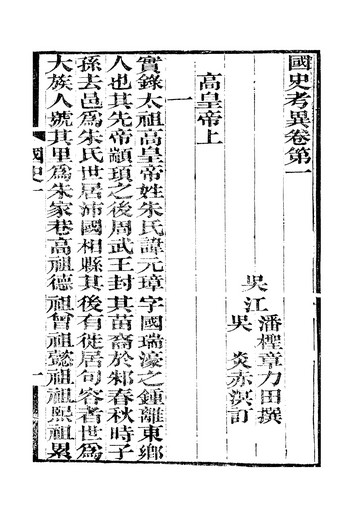 國史考異卷第一
吳江
潘檉章力田撰
吳炎赤溟訂
高皇帝上
一
實錄太祖高皇帝姓朱氏諱元璋字國瑞濠之鍾離東鄉
人也其先帝顓頊之後周武王封其苗裔於邾春秋時子
孫去邑爲朱氏世居沛國相縣其後有徙居句容者世爲
大族人號其里爲朱家巷高祖德祖曾祖懿祖祖熙祖累
國史一
一